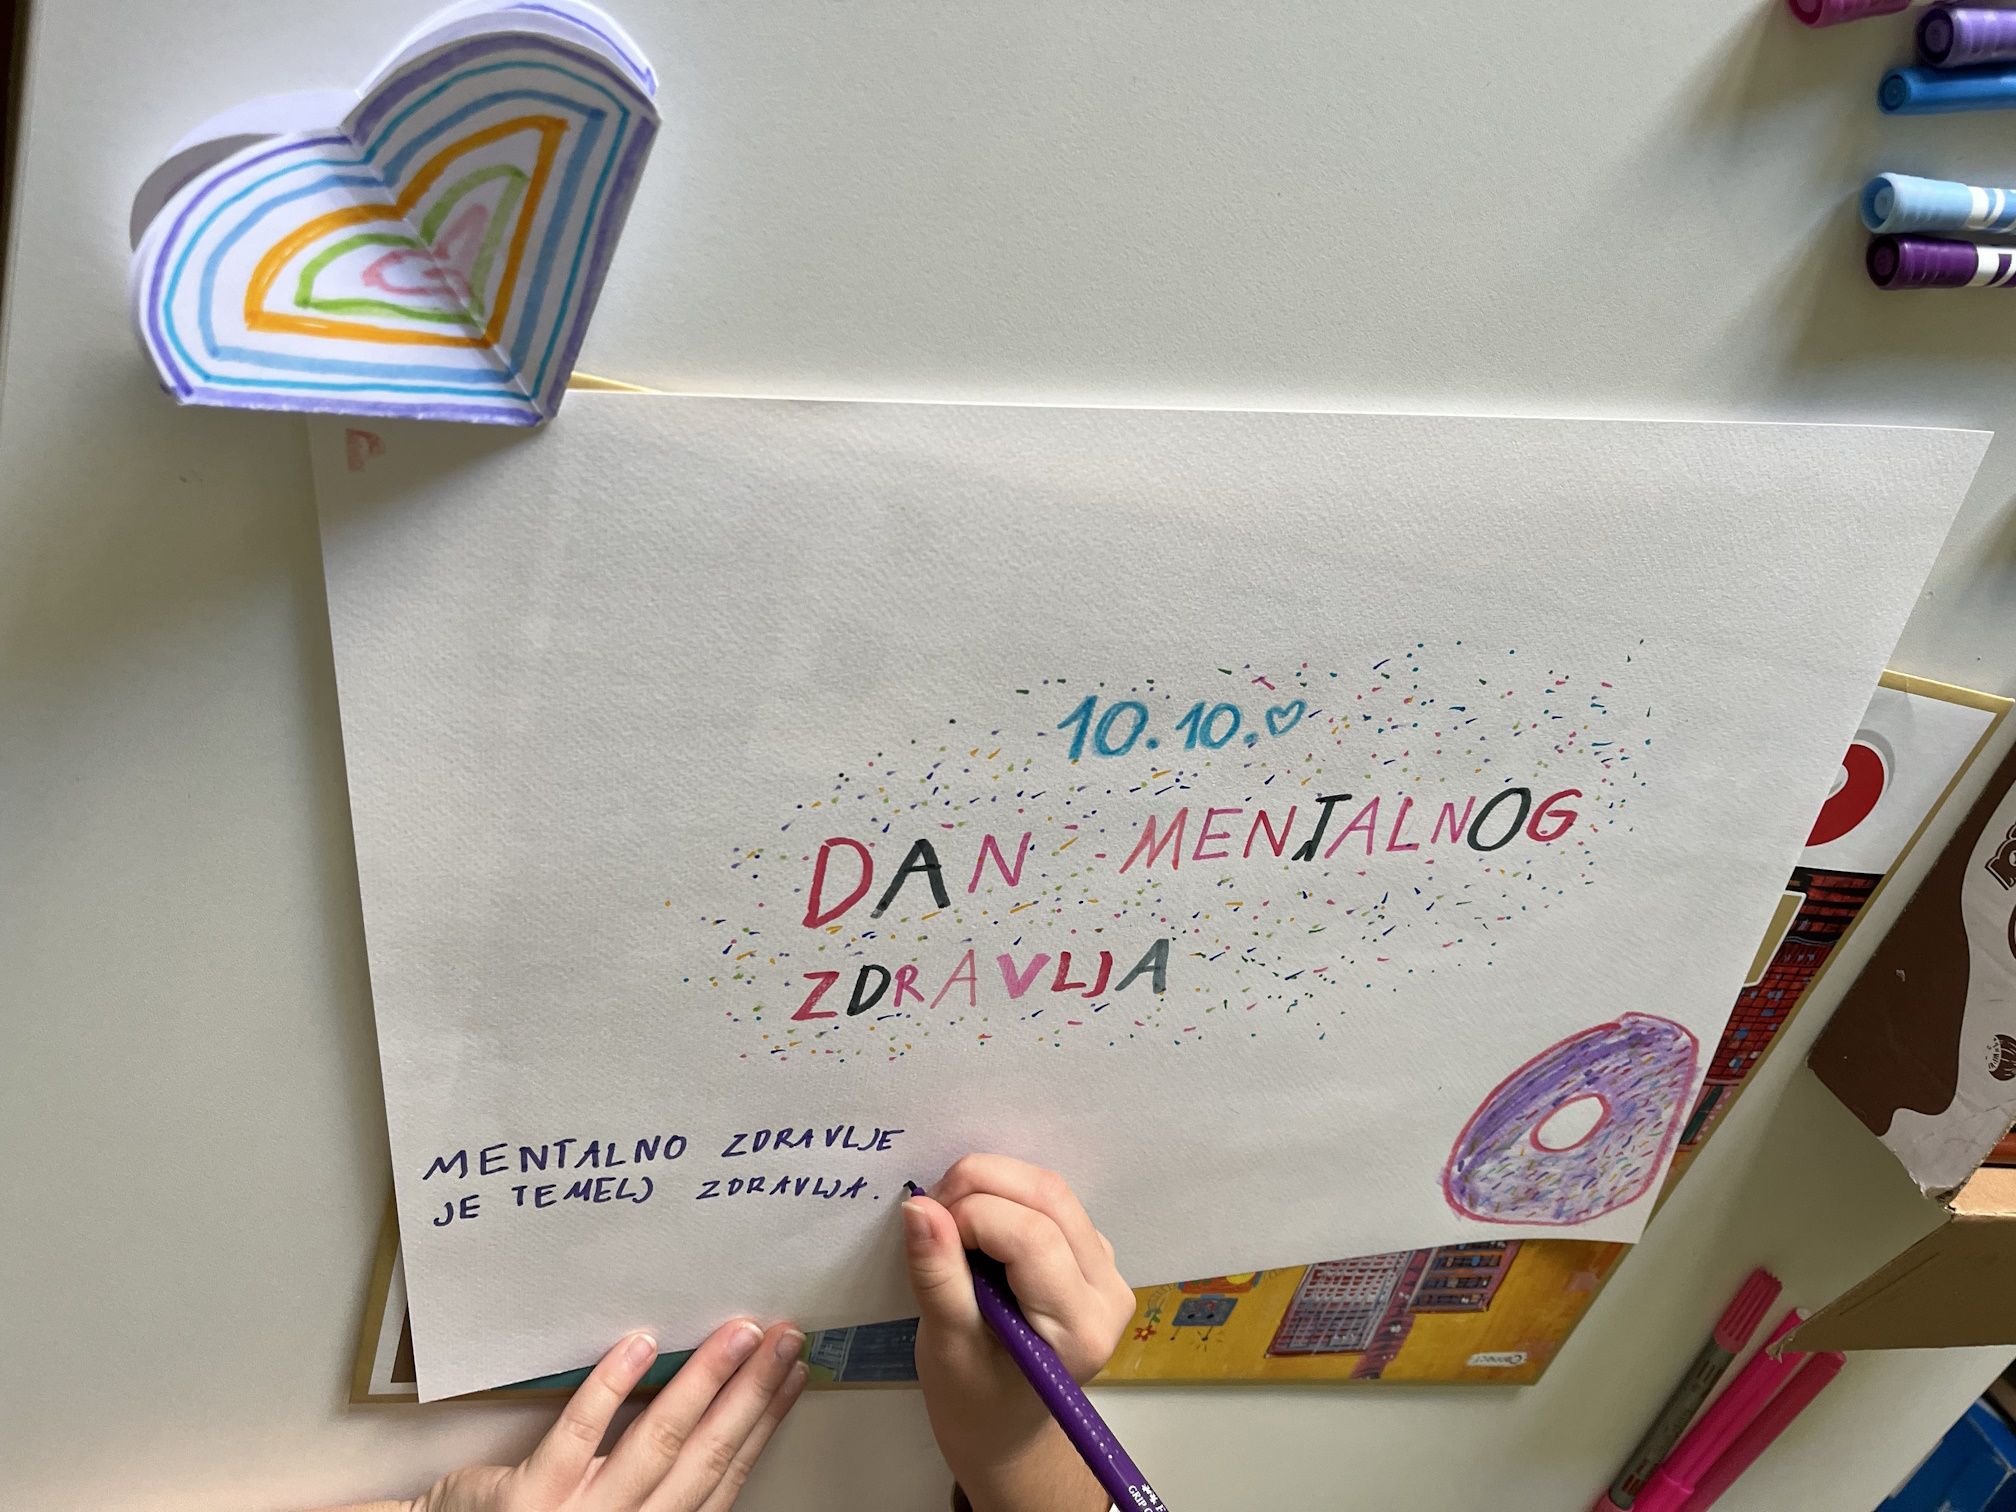 10.10.♡
DAN MENTALNOG
ZDRAVLJA
MENTALNO ZDRAVLJE
JE TEMELJ ZDRAVLJA.
Connect
GRIP